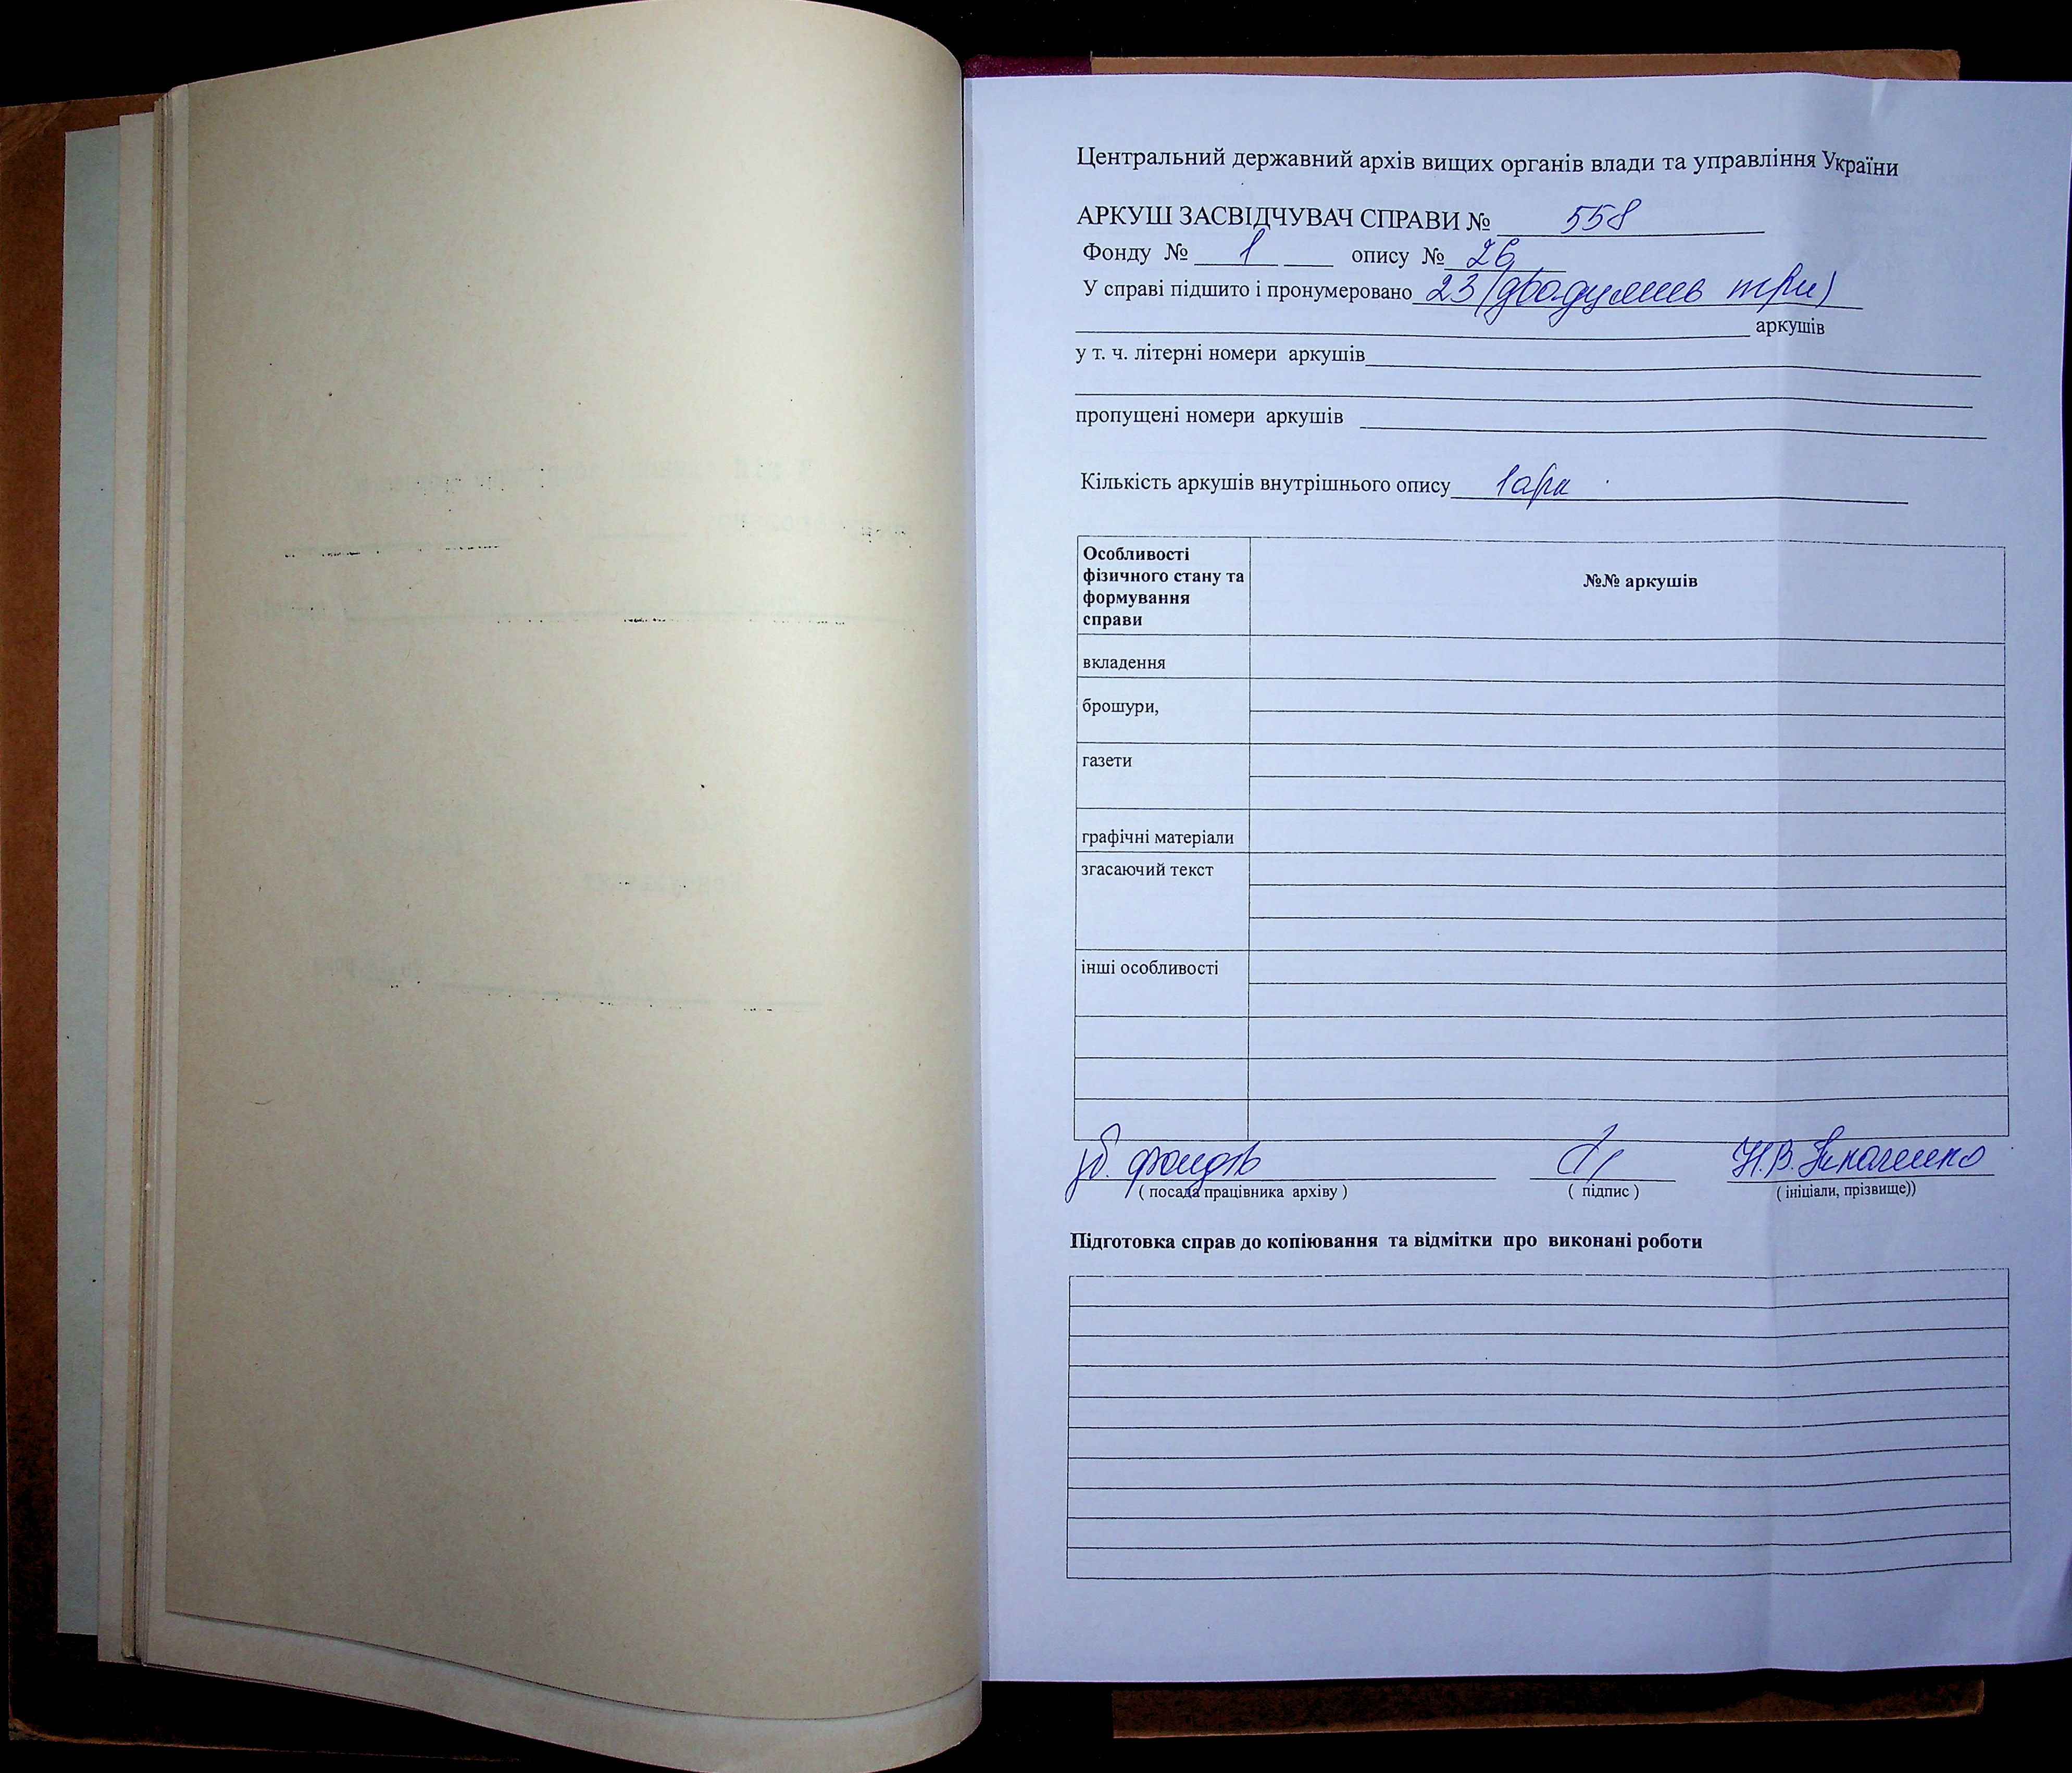 Центральний державний архів вищих органів влади та управління України
АРКУШ ЗАСВІДЧУВАЧ СПРАВИ № 558
Фонду № 1 опису № 26
У справі підшито і пронумеровано 23 (двадцять три)
аркушів
у т. ч. літерні номери аркушів
пропущені номери аркушів
Кількість аркушів внутрішнього опису 1 арк
Особливості фізичного стану та формування справи
№№ аркушів
вкладення
брошури,
газети
графічні матеріали
згасаючий текст
інші особливості
фондів
( посада працівника архіву ) ( підпис ) ( ініціали, прізвище))
Н.В.
Підготовка справ до копіювання та відмітки про виконані роботи